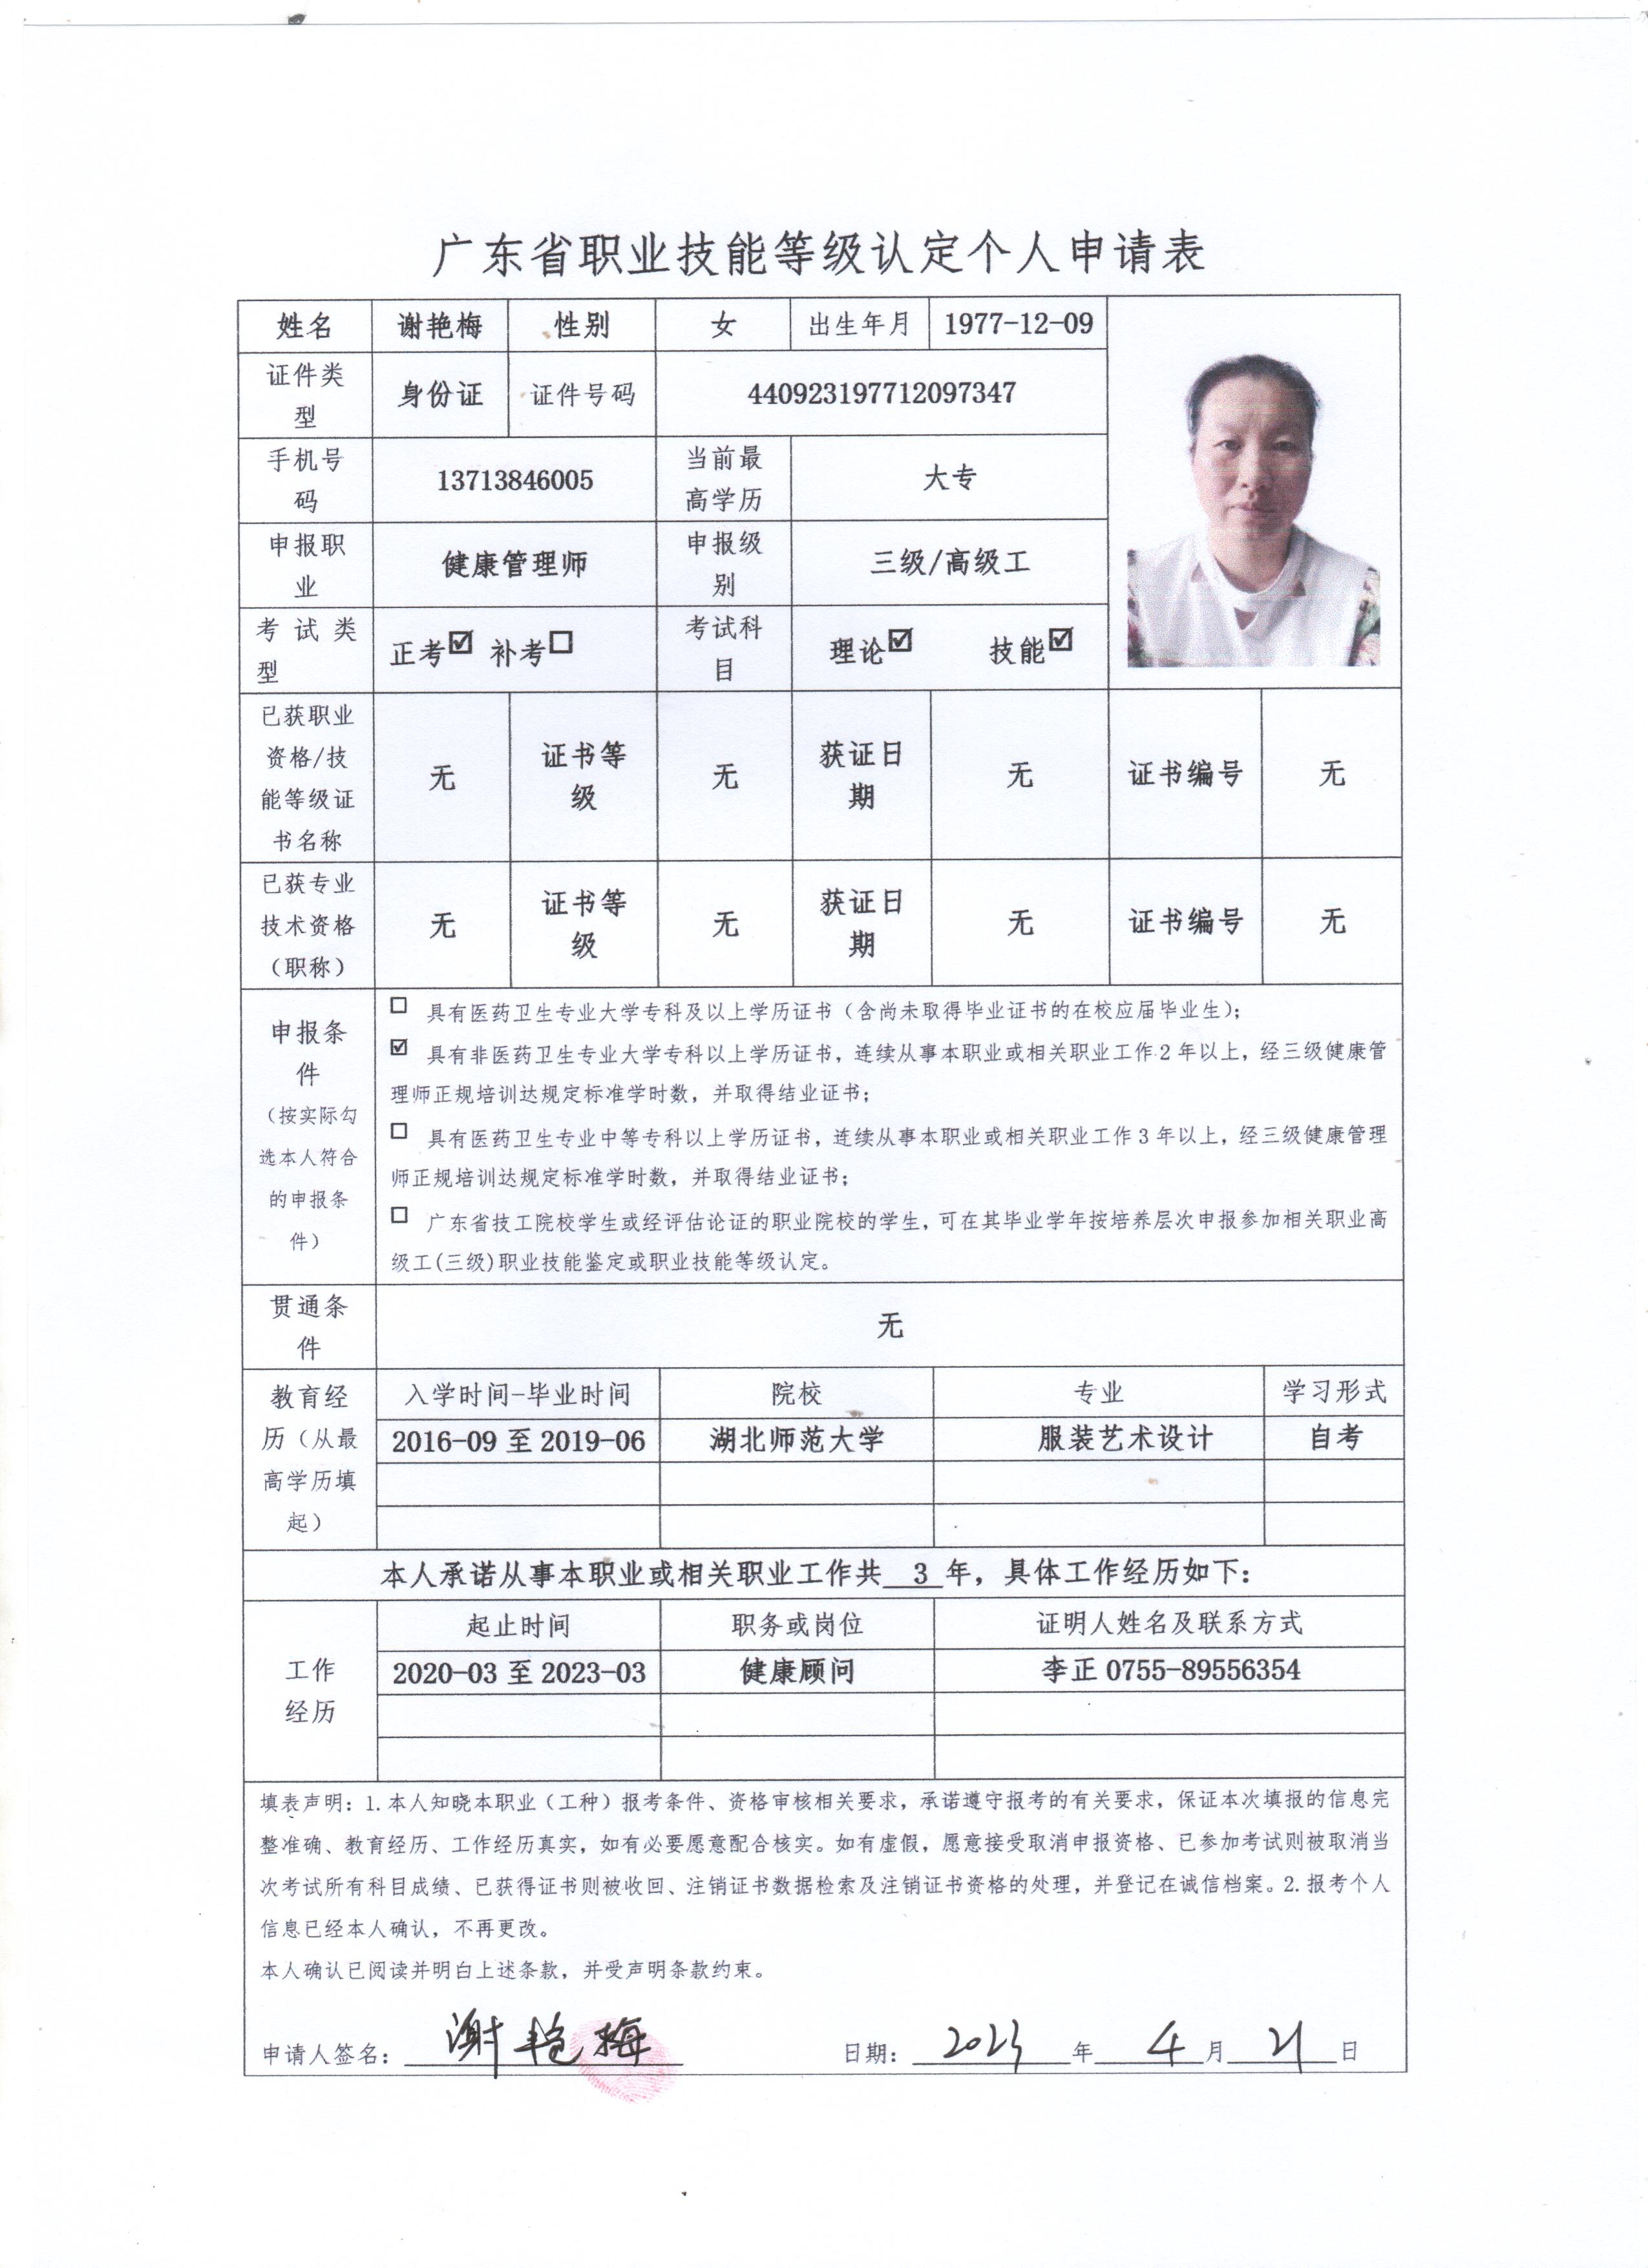 广东省职业技能等级认定个人申请表
姓名 谢艳梅 性别 女 出生年月 1977-12-09
证件类型 身份证 证件号码 440923197712097347
手机号码 13713846005 当前最高学历 大专
申报职业 健康管理师 申报级别 三级/高级工
考试类型 正考☑ 补考☐ 考试科目 理论☑ 技能☑
已获职业资格/技能等级证书名称 无 证书等级 无 获证日期 无 证书编号 无
已获专业技术资格（职称） 无 证书等级 无 获证日期 无 证书编号 无
申报条件（按实际勾选本人符合的申报条件）
☐ 具有医药卫生专业大学专科及以上学历证书（含尚未取得毕业证书的在校应届毕业生）；
☑ 具有非医药卫生专业大学专科以上学历证书，连续从事本职业或相关职业工作2年以上，经三级健康管
理师正规培训达规定标准学时数，并取得结业证书；
☐ 具有医药卫生专业中等专科以上学历证书，连续从事本职业或相关职业工作3年以上，经三级健康管理
师正规培训达规定标准学时数，并取得结业证书；
☐ 广东省技工院校学生或经评估论证的职业院校的学生，可在其毕业学年按培养层次申报参加相关职业高
级工(三级)职业技能鉴定或职业技能等级认定。
贯通条件 无
教育经历（从最高学历填起） 入学时间-毕业时间 院校 专业 学习形式
2016-09 至 2019-06 湖北师范大学 服装艺术设计 自考
本人承诺从事本职业或相关职业工作共 3 年，具体工作经历如下：
工作经历 起止时间 职务或岗位 证明人姓名及联系方式
2020-03 至 2023-03 健康顾问 李正 0755-89556354
填表声明：1.本人知晓本职业（工种）报考条件、资格审核相关要求，承诺遵守报考的有关要求，保证本次填报的信息完
整准确、教育经历、工作经历真实，如有必要愿意配合核实。如有虚假，愿意接受取消申报资格、已参加考试则被取消当
次考试所有科目成绩、已获得证书则被收回、注销证书数据检索及注销证书资格的处理，并登记在诚信档案。2.报考个人
信息已经本人确认，不再更改。
本人确认已阅读并明白上述条款，并受声明条款约束。
申请人签名：谢艳梅 日期：2023 年 4 月 21 日